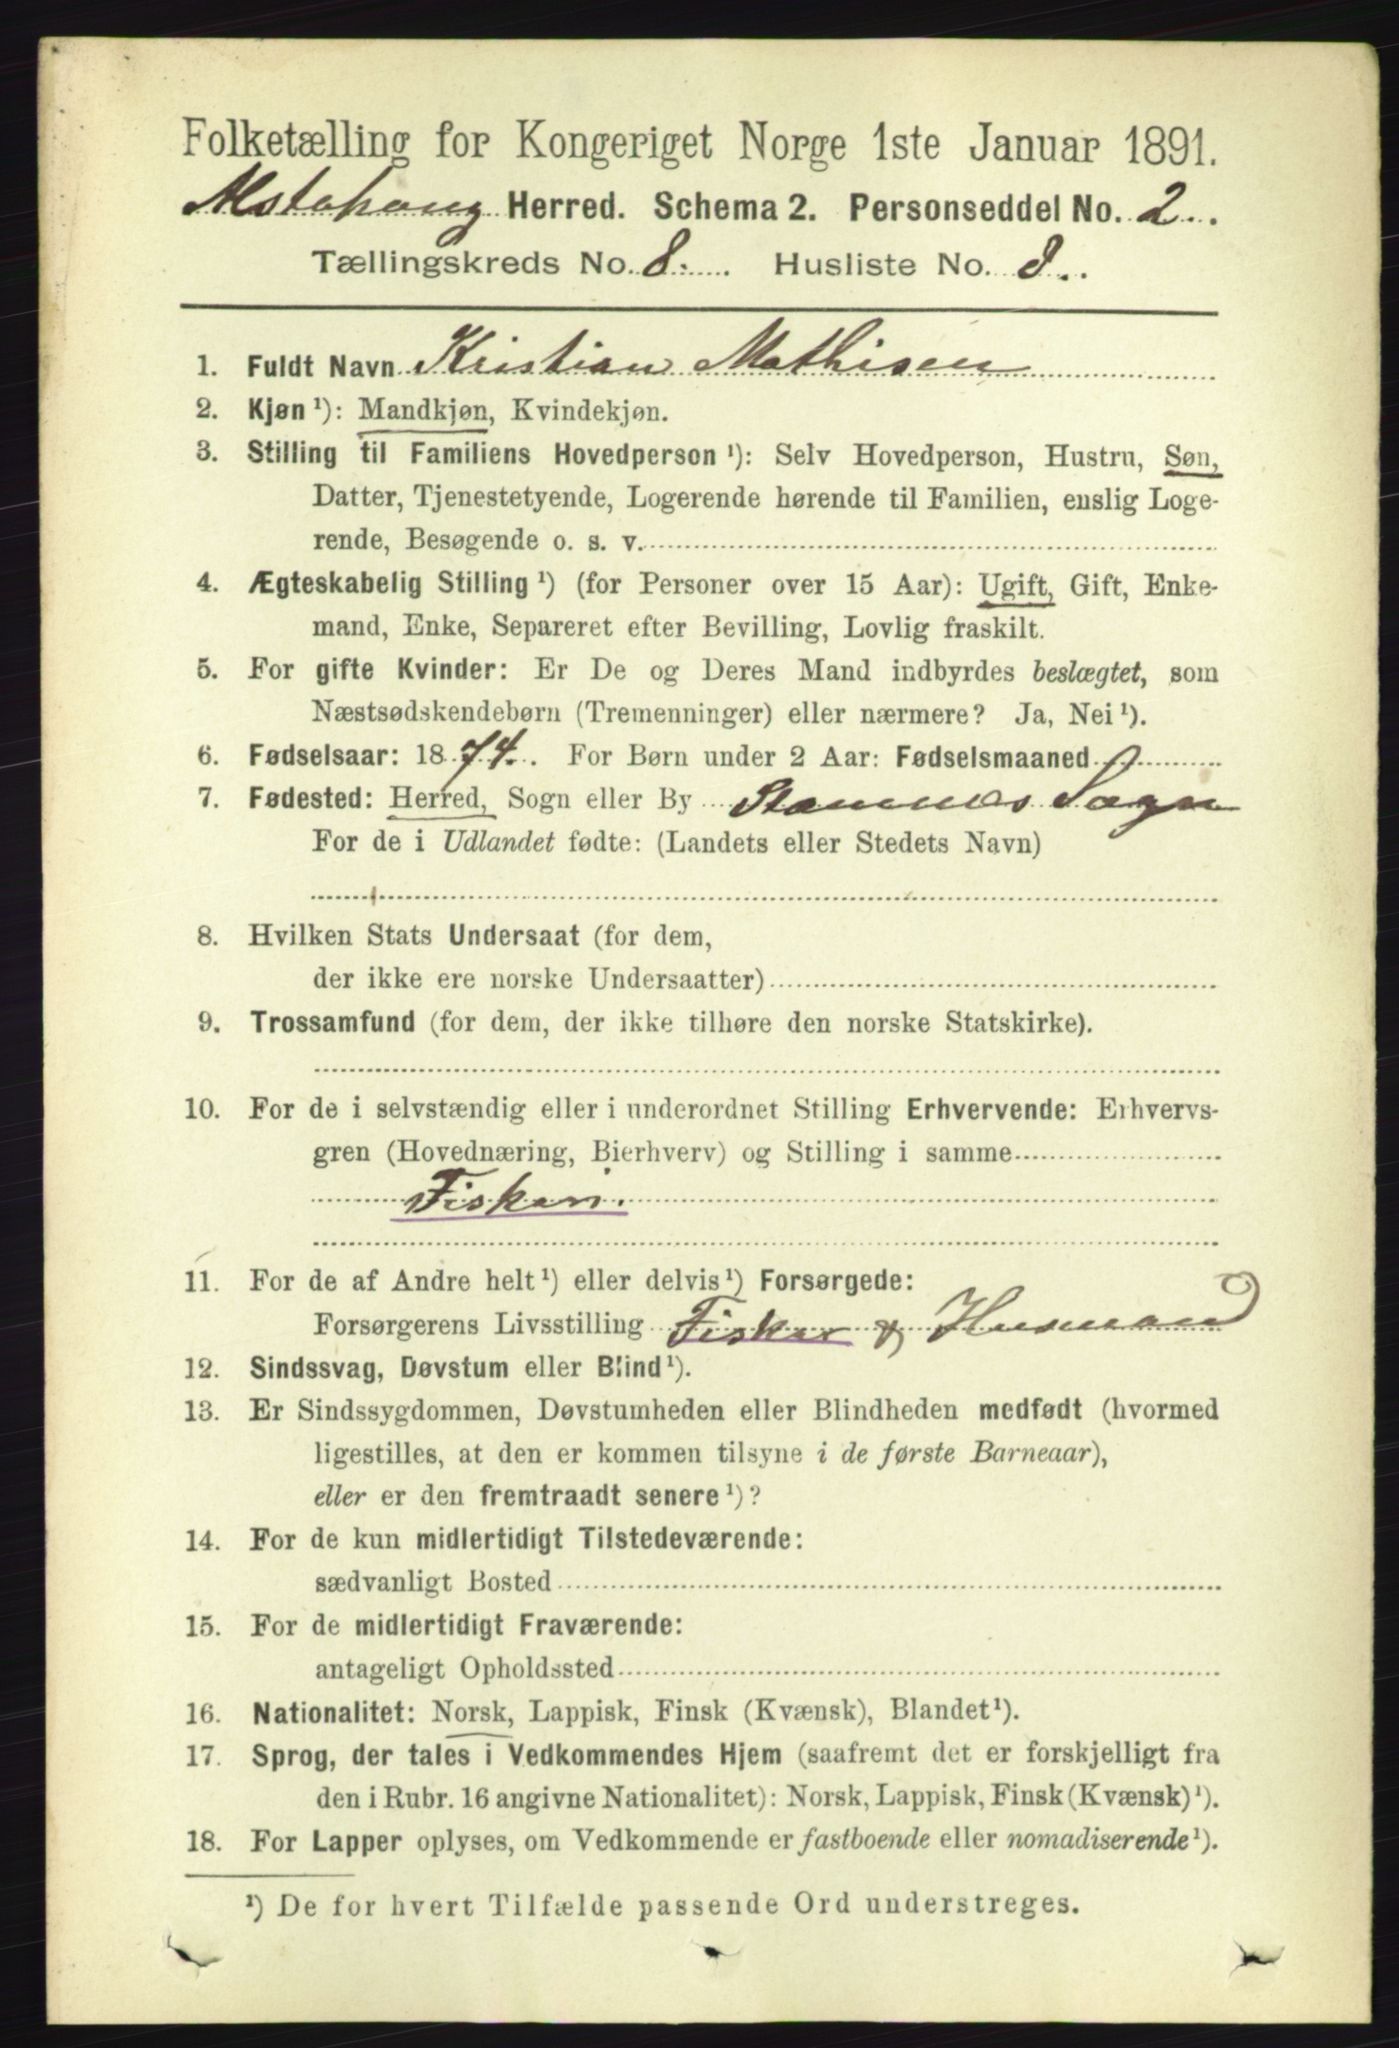 Folketælling for Kongeriget Norge 1ste Januar 1891.
Alstahaug Herred. Schema 2. Personseddel No. 2
Tællingskreds No. 8. Husliste No. 8.
1. Fuldt Navn Kristian Mathisen
2. Kjøn¹): Mandkjøn, Kvindekjøn.
3. Stilling til Familiens Hovedperson¹): Selv Hovedperson, Hustru, Søn,
Datter, Tjenestetyende, Logerende hørende til Familien, enslig Loge-
rende, Besøgende o. s. v.
4. Ægteskabelig Stilling¹) (for Personer over 15 Aar): Ugift, Gift, Enke-
mand, Enke, Separeret efter Bevilling, Lovlig fraskilt.
5. For gifte Kvinder: Er De og Deres Mand indbyrdes beslægtet, som
Næstsødskendebørn (Tremenninger) eller nærmere? Ja, Nei¹).
6. Fødselsaar: 1874. For Børn under 2 Aar: Fødselsmaaned
7. Fødested: Herred, Sogn eller By Stamnes Sogn
For de i Udlandet fødte: (Landets eller Stedets Navn)
8. Hvilken Stats Undersaat (for dem,
der ikke ere norske Undersaatter)
9. Trossamfund (for dem, der ikke tilhøre den norske Statskirke).
10. For de i selvstændig eller i underordnet Stilling Erhvervende: Erhvervs-
gren (Hovednæring, Bierhverv) og Stilling i samme
Fiskeri.
11. For de af Andre helt¹) eller delvis¹) Forsørgede:
Forsørgerens Livsstilling Fisker & Husmand
12. Sindssvag, Døvstum eller Blind¹).
13. Er Sindssygdommen, Døvstumheden eller Blindheden medfødt (hvormed
ligestilles, at den er kommen tilsyne i de første Barneaar),
eller er den fremtraadt senere¹)?
14. For de kun midlertidigt Tilstedeværende:
sædvanligt Bosted
15. For de midlertidigt Fraværende:
antageligt Opholdssted
16. Nationalitet: Norsk, Lappisk, Finsk (Kvænsk), Blandet¹).
17. Sprog, der tales i Vedkommendes Hjem (saafremt det er forskjelligt fra
den i Rubr. 16 angivne Nationalitet): Norsk, Lappisk, Finsk (Kvænsk)¹).
18. For Lapper oplyses, om Vedkommende er fastboende eller nomadiserende¹).
¹) De for hvert Tilfælde passende Ord understreges.